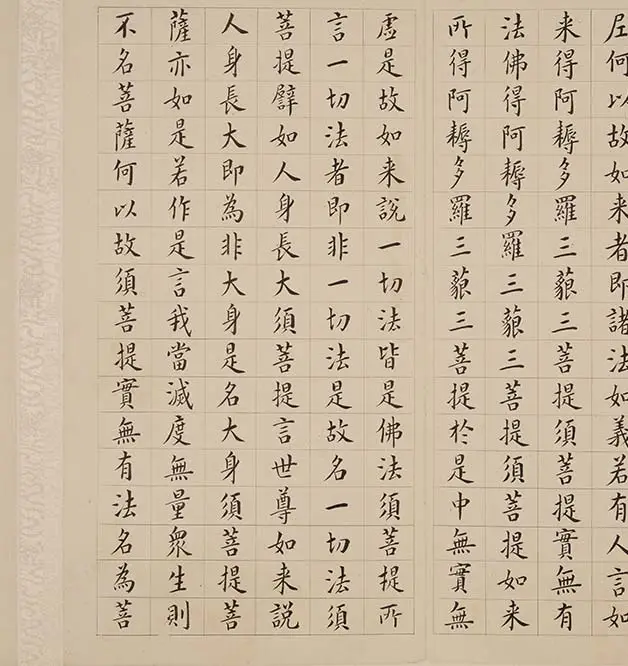 尼何以故如来者即諸法如義若有人言如
来得阿耨多羅三藐三菩提須菩提實無有
法佛得阿耨多羅三藐三菩提須菩提如来
所得阿耨多羅三藐三菩提於是中無實無
虛是故如来說一切法皆是佛法須菩提所
言一切法者即非一切法是故名一切法須
菩提譬如人身長大須菩提言世尊如来說
人身長大即為非大身是名大身須菩提菩
薩亦如是若作是言我當滅度無量衆生則
不名菩薩何以故須菩提實無有法名為菩